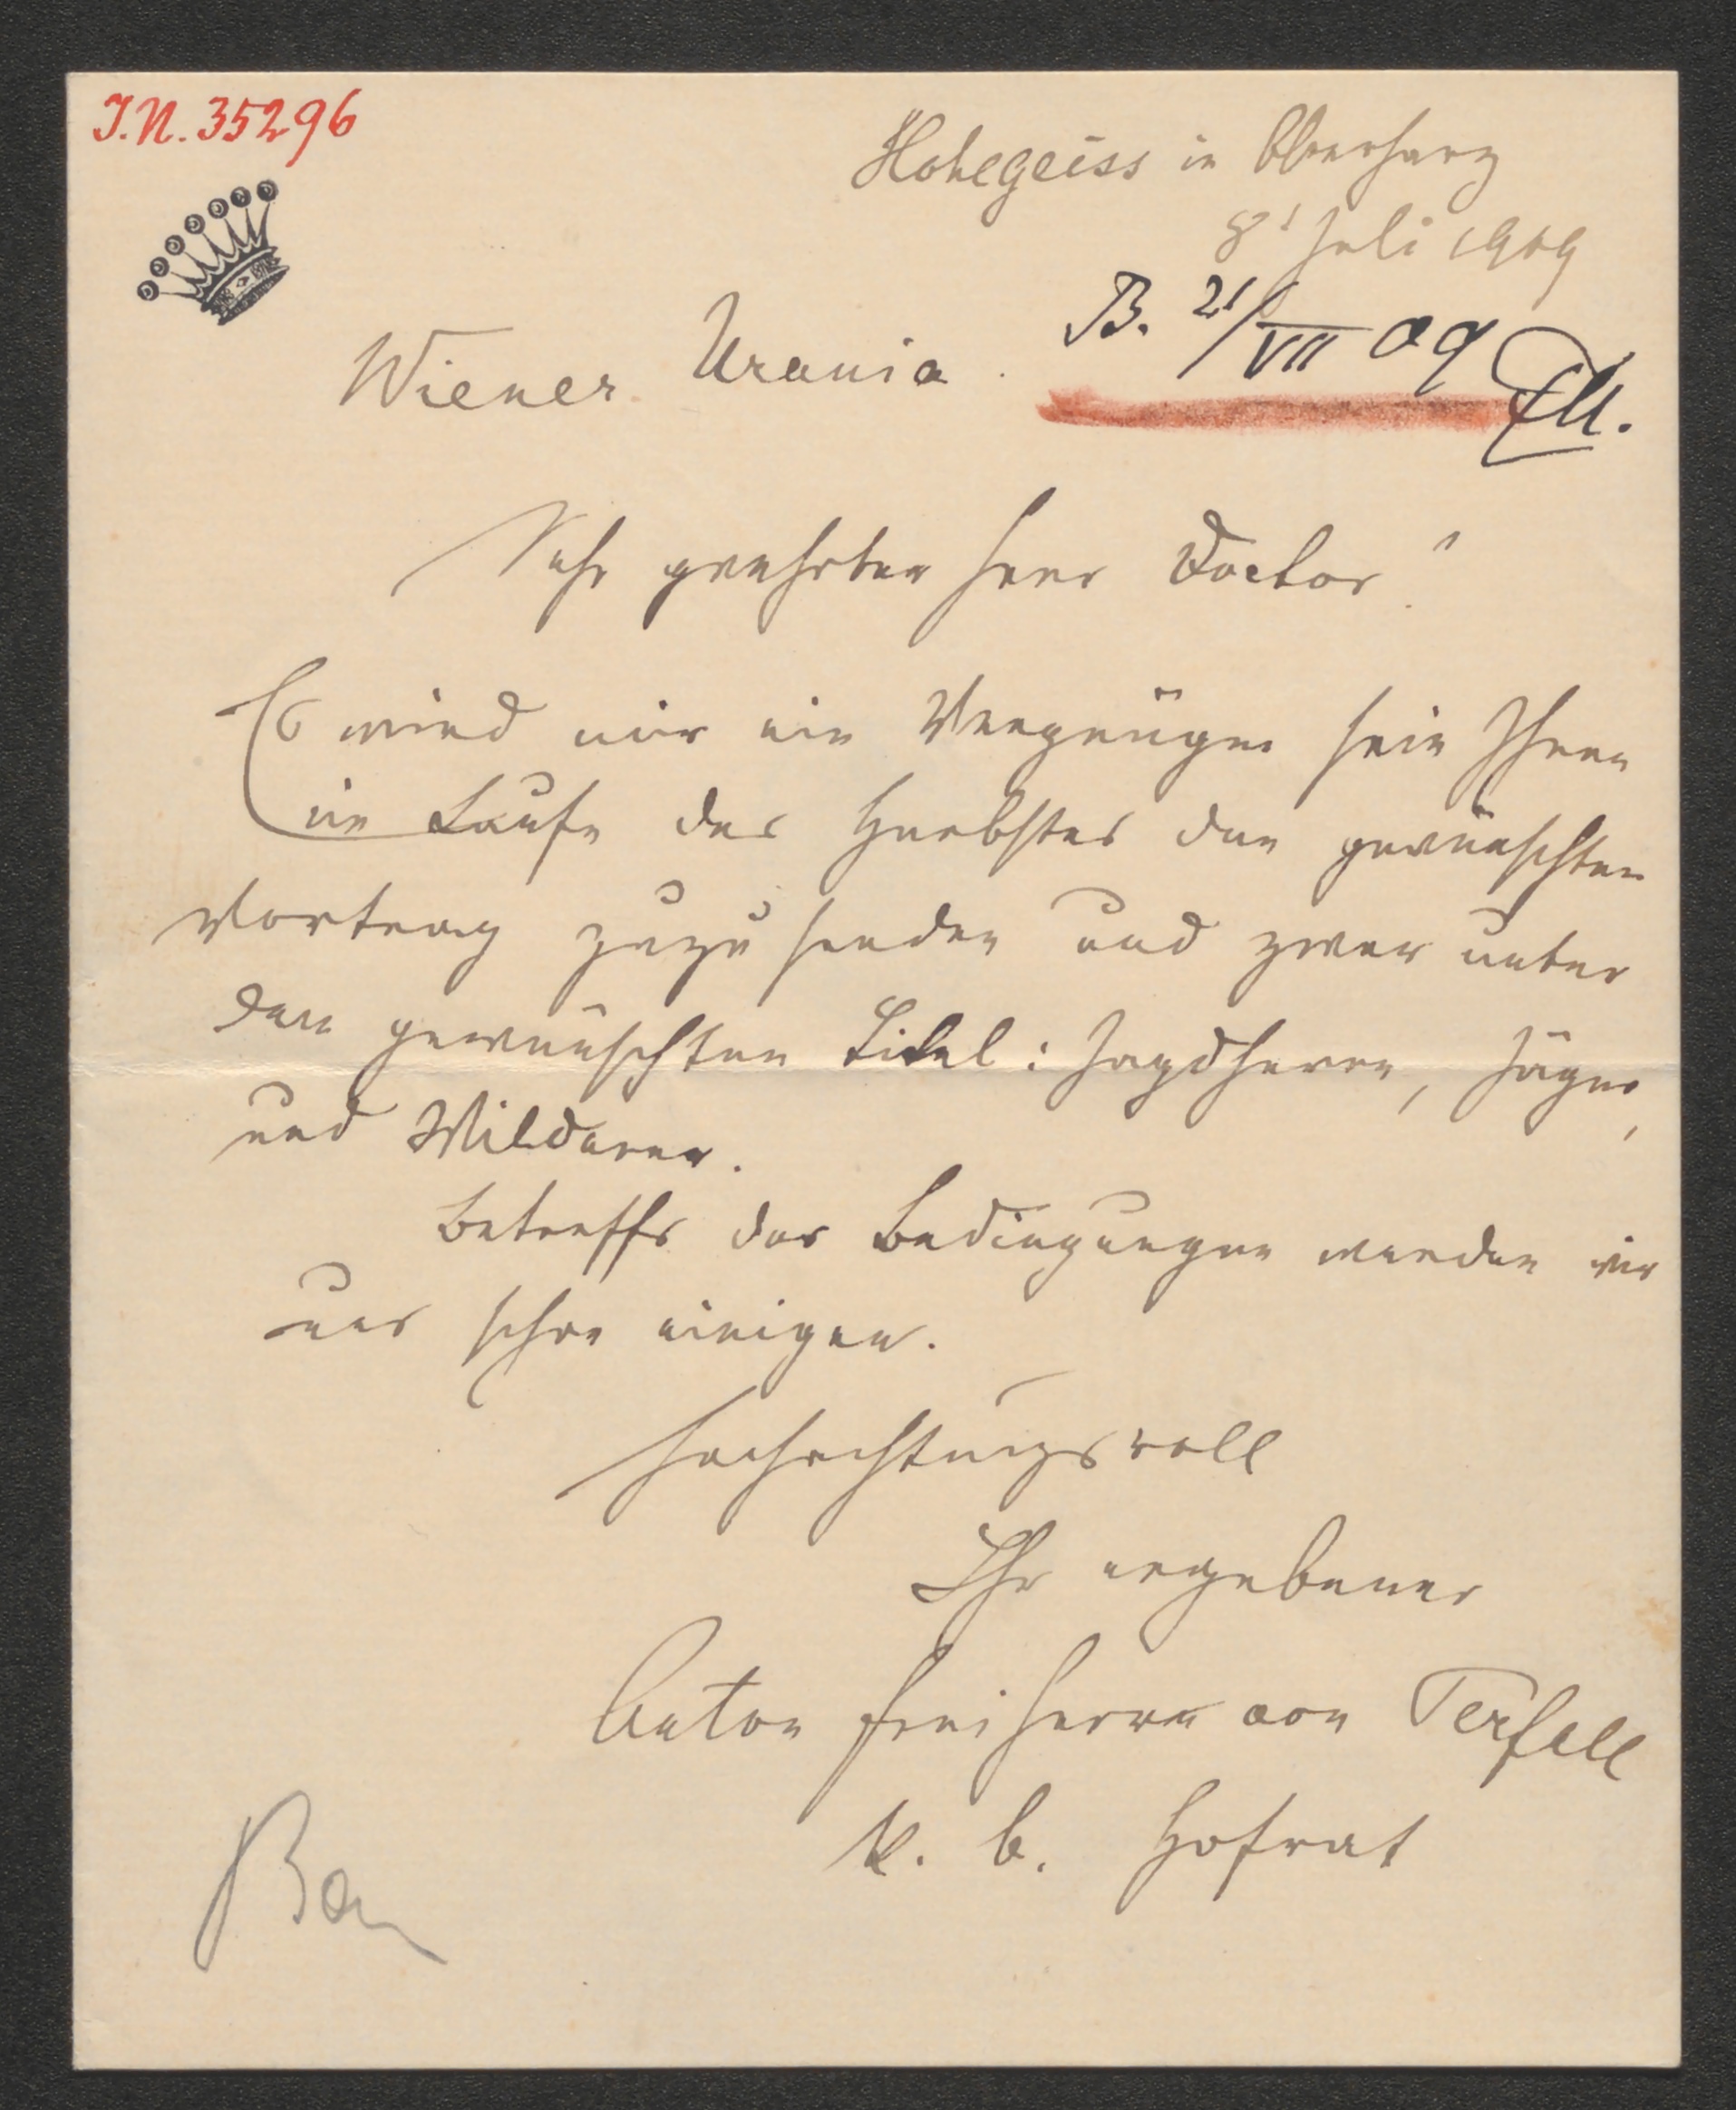 I.N. 35296
Hohegeiss in Oberharz
8' Juli 1909
B. 21/VII 09
Wiener Urania.
Sehr geehrter Herr Doctor!
Es wird mir ein Vergnügen sein Ihnen
im Laufe des Herbstes den gewünschten
Vortrag zuzusenden und zwar unter
dem gewünschten Titel: Jagdherrn, Jäger,
und Wilderer.
Betreffs der Bedingungen werden wir
uns schon einigen.
Hochachtungsvoll
Ihr ergebener
Anton Freiherr von Perfall
K. b. Hofrat